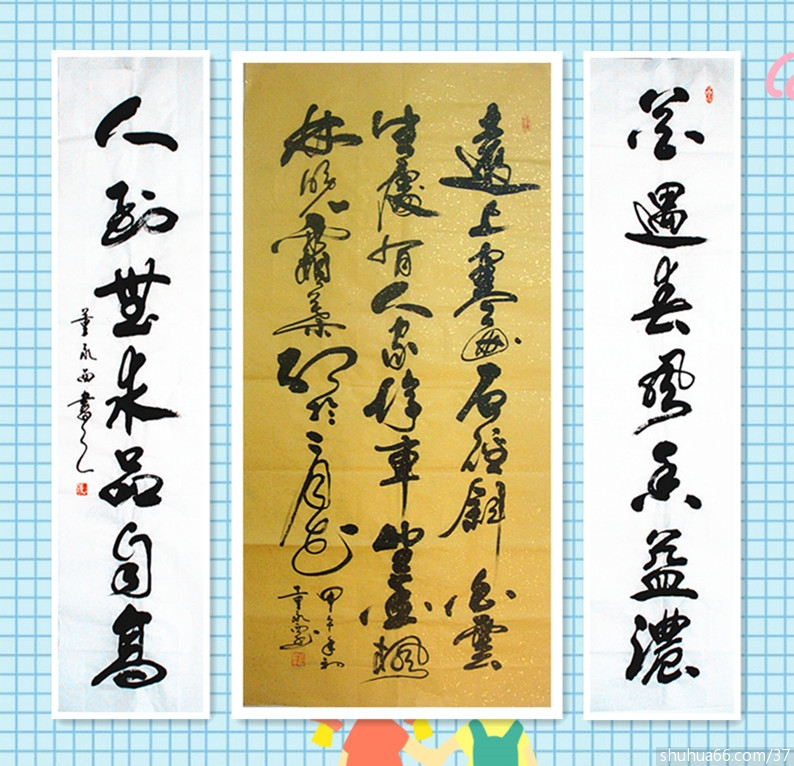 花遇春風香益濃
遠上寒山石徑斜白雲
生處有人家停車坐愛楓
林晚霜葉紅於二月花
甲午年初
董永西書
人到無求品自高
董永西書之
shuhua66.com/37